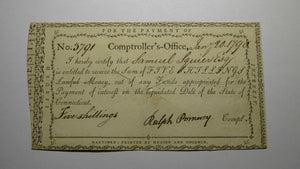 FOR THE PAYMENT OF
No. 3791 Comptroller's-Office, Jan 20 1790
I hereby certify that Samuel Squier Esq
is entitled to receive the Sum of FIVE SHILLINGS
Lawful Money, out of any Funds appropriated for the
Payment of interest on the liquidated Debt of the State of
Connecticut.
Five shillings
Ralph Pomeroy Compt.
HARTFORD: PRINTED BY HUDSON AND GOODWIN.